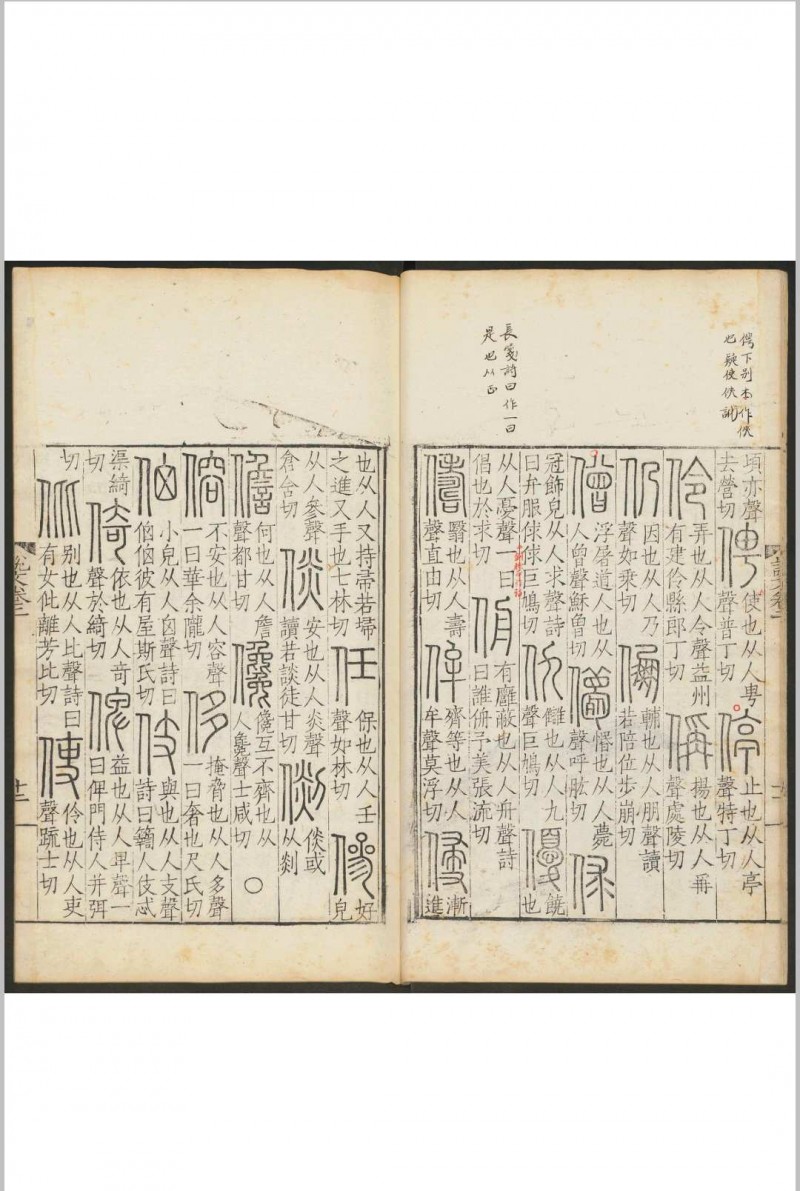 俜下別本作佚
也疑使佚訛
長箋詩曰作一曰
是也从正
頃亦聲去營切 俜 使也从人甹聲普丁切 停 止也从人亭聲特丁切
伶 弄也从人令聲益州有建伶縣郎丁切 偁 揚也从人爯聲處陵切
仍 因也从人乃聲如乘切 倗 輔也从人朋聲讀若陪位步崩切
僧 浮屠道人也从人曾聲穌曾切 儚 惛也从人薨聲呼肱切 俅
冠飾皃从人求聲詩曰弁服俅俅巨鳩切 仇 讎也从人九聲巨鳩切 優 饒也
从人憂聲一曰倡也於求切 侜 有廱蔽也从人舟聲詩曰誰侜予美張流切
儔 翳也从人壽聲直由切 侔 齊等也从人牟聲莫浮切 侵 漸進
也从人又持帚若埽之進又手也七林切 任 保也从人壬聲如林切 傪 好皃
从人參聲倉含切 倓 安也从人炎聲讀若談徒甘切 倓或从剡
儋 何也从人詹聲都甘切 儳 儳互不齊也从人毚聲士咸切 〇
傛 不安也从人容聲一曰華余隴切 侈 掩脅也从人多聲一曰奢也尺氏切
伵 小皃从人囟聲詩曰伵伵彼有屋斯氏切 伎 與也从人支聲詩曰籲人伎忒
渠綺切 倚 依也从人奇聲於綺切 俾 益也从人卑聲一曰俾門侍人并弭
切 仳 別也从人比聲詩曰有女仳離芳比切 使 伶也从人吏聲疏士切